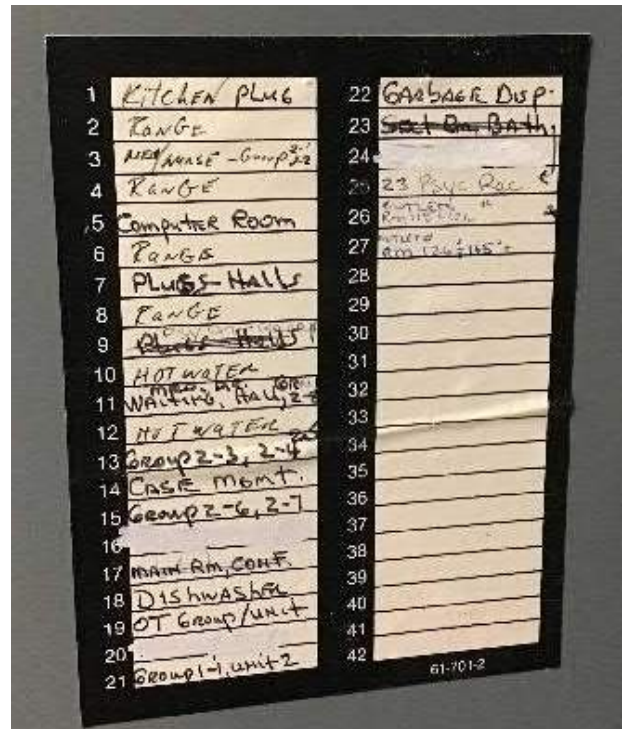 1 KitcHEN PLUG
2 RANGE
3 NURSE - Group
4 RANGE
5 Computer Room
6 RANGE
7 PLUGS-HALLS
8 RANGE
9 Plugs Halls
10 HOT WATER
11 WAITING, HALL,
12 HOT WATER
13 Group 2-3, 2-4
14 CASE MGMT.
15 Group 2-6, 2-7
16
17 MAIN Rm, CONF.
18 DISHWASHER
19 OT Group/UNIT
20
21 GROUP 1-1, UNIT 2
22 GARBAGE DISP.
23 Bath
24
25 23 Psyc
26 OUTLETS
27 RM
28
29
30
31
32
33
34
35
36
37
38
39
40
41
42
61-701-2